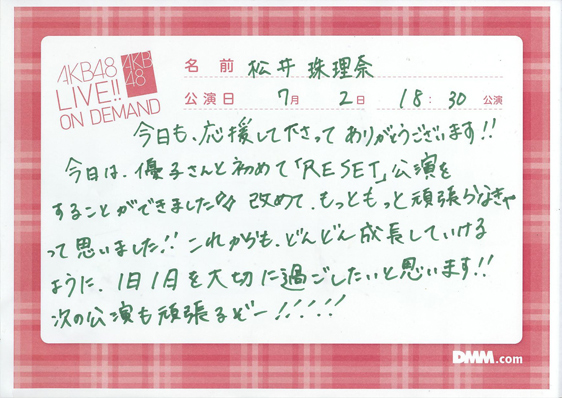 AKB48
LIVE!!
ON DEMAND
AKB
48
名 前 松井 珠理奈
公演日 7月 2日 18:30 公演
今日も、応援して下さって ありがとうございます!!
今日は、優子さんと初めて「RESET」公演を
することができました♪♪ 改めて、もっともっと頑張らなきゃ
って思いました!! これからも、どんどん成長していける
ように、1日1日を大切に過ごしたいと思います!!
次の公演も頑張るぞー!!!!!
DMM.com